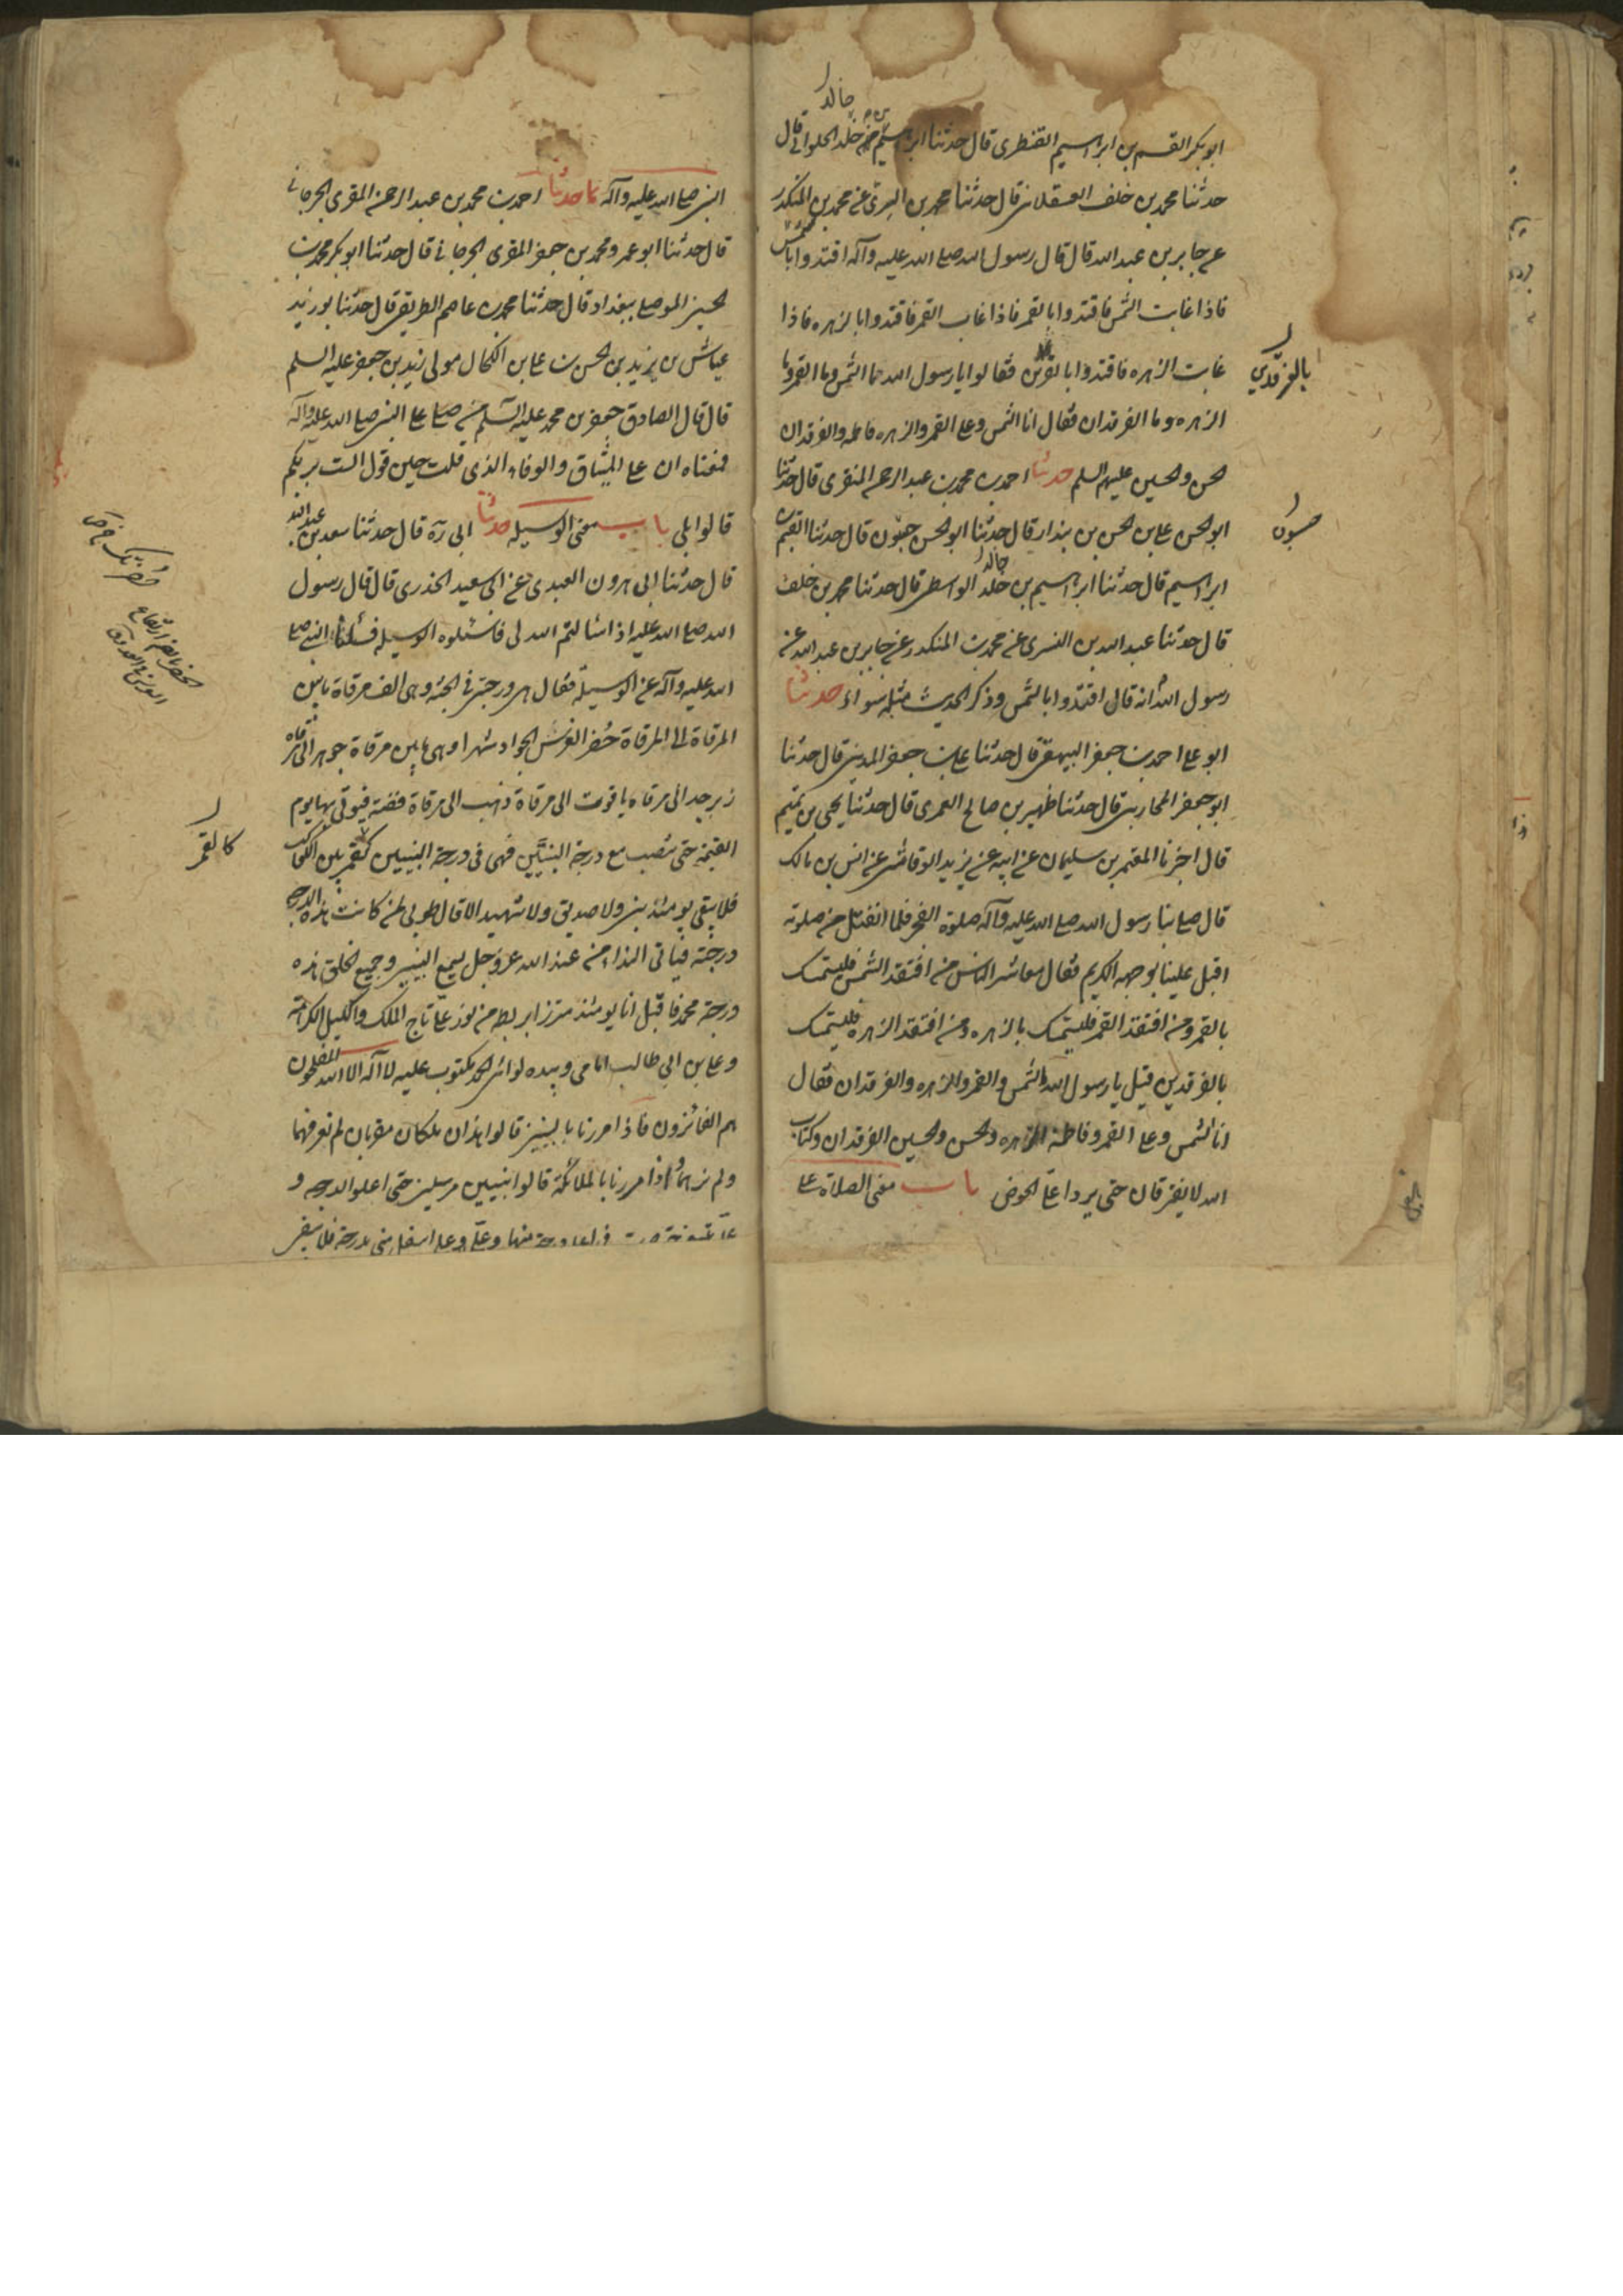 خالد
ابو بكر القسم بن ابراهيم القنطرى قال حدثنا ابراهيم بن خلد الحلوانى قال
حدثنا محمد بن خلف العسقلانى قال حدثنا محمد بن السرى عن محمد بن المنكدر
عن جابر بن عبد الله قال قال رسول الله صلى الله عليه وآله اقتدوا بالشمس
فاذا غابت الشمس فاقتدوا بالقمر فاذا غاب القمر فاقتدوا بالزهره فاذا
غابت الزهره فاقتدوا بالفرقدين فقالوا يا رسول الله ما الشمس وما القمر وما
بالفرقدين
الزهره وما الفرقدان فقال انا الشمس وعلى القمر والزهره فاطمه والفرقدان
الحسن والحسين عليهم السلم حدثنا احمد بن محمد بن عبد الرحمن المقرى قال حدثنا
ابو الحسن على بن الحسن بن بندار قال حدثنا ابو الحسن حيون قال حدثنا القسم بن
حسون
خالد
ابراهيم قال حدثنا ابراهيم بن خلد الواسطى قال حدثنا محمد بن خلف
قال حدثنا عبد الله بن السرى عن محمد بن المنكدر عن جابر بن عبد الله عن
رسول الله انه قال اقتدوا بالشمس وذكر الحديث مثله سواء حدثنا
ابو على احمد بن جعفر البيهقى قال حدثنا على بن جعفر المدينى قال حدثنا
ابو جعفر المحاربى قال حدثنا ظهير بن صالح العمرى قال حدثنا يحيى بن تميم
قال اخبرنا المعتمر بن سليمان عن ابيه عن يزيد الرقاشى عن انس بن مالك
قال صلى بنا رسول الله صلى الله عليه وآله صلوة الفجر فلما انفتل من صلوته
اقبل علينا بوجهه الكريم فقال معاشر الناس من افتقد الشمس فليستمسك
بالقمر ومن افتقد القمر فليستمسك بالزهره ومن افتقد الزهره فليستمسك
بالفرقدين قيل يا رسول الله ما الشمس والقمر والزهره والفرقدان فقال
انا الشمس وعلى القمر وفاطمة الزهره والحسن والحسين الفرقدان وكتاب
الله لا يفترقان حتى يردا على الحوض باب معنى الصلاة على
النبى صلى الله عليه وآله حدثنا احمد بن محمد بن عبد الرحمن المقرى الجرجانى
قال حدثنا ابو عمرو محمد بن جعفر المقرى الجرجانى قال حدثنا ابو بكر محمد بن
الحسن الموصلى ببغداد قال حدثنا محمد بن عاصم الطريفى قال حدثنا ابو زيد
عياش بن يزيد بن الحسن بن على بن الكحال مولى زيد بن جعفر عليه السلم
قال قال الصادق جعفر بن محمد عليه السلم من صلى على النبى صلى الله عليه وآله
فمعناه انى على الميثاق والوفاء الذى قلت حين قوله الست بربكم
قالوا بلى باب معنى الوسيله حدثنا ابى ره قال حدثنا سعد بن عبد الله
قال حدثنا ابى هرون العبدى عن ابى سعيد الخدرى قال قال رسول
الله صلى الله عليه اذا سالتم الله لى فاسئلوه الوسيله فسئلنا النبى صلى
الله عليه وآله عن الوسيلة فقال هى درجتى فى الجنة وهى الف مرقاة ما بين
المرقاة الى المرقاة حضر الفرس الجواد شهرا وهى ما بين مرقاة جوهر الى مرقاة
زبرجد الى مرقاة ياقوت الى مرقاة ذهب الى مرقاة فضة فيؤتى بها يوم
القيمة حتى تنصب مع درجة النبيين فهى فى درجة النبيين كقمر بين الكواكب
كالقمر
فلا يبقى يومئذ نبى ولا صديق ولا شهيد الا قال طوبى لمن كانت هذه الدرجة
درجته فياتى النداء من عند الله عز وجل يسمع النبيين وجميع الخلق هذه
درجة محمد فاقبل انا يومئذ متزرا بريطة من نور على تاج الملك واكليل الكرامة
وعلى بن ابى طالب امامى وبيده لوائى لواء الحمد مكتوب عليه لا اله الا الله المفلحون
هم الفائزون فاذا مررنا بالنبيين قالوا هذان ملكان مقربان لم نعرفهما
ولم نرهما واذا مررنا بالملائكة قالوا نبيين مرسلين حتى اعلوا الدرجه و
على يتبعنى حتى اذا صرت فى اعلى درجة منها وعلى اسفل منى بدرجة فلا يبقى